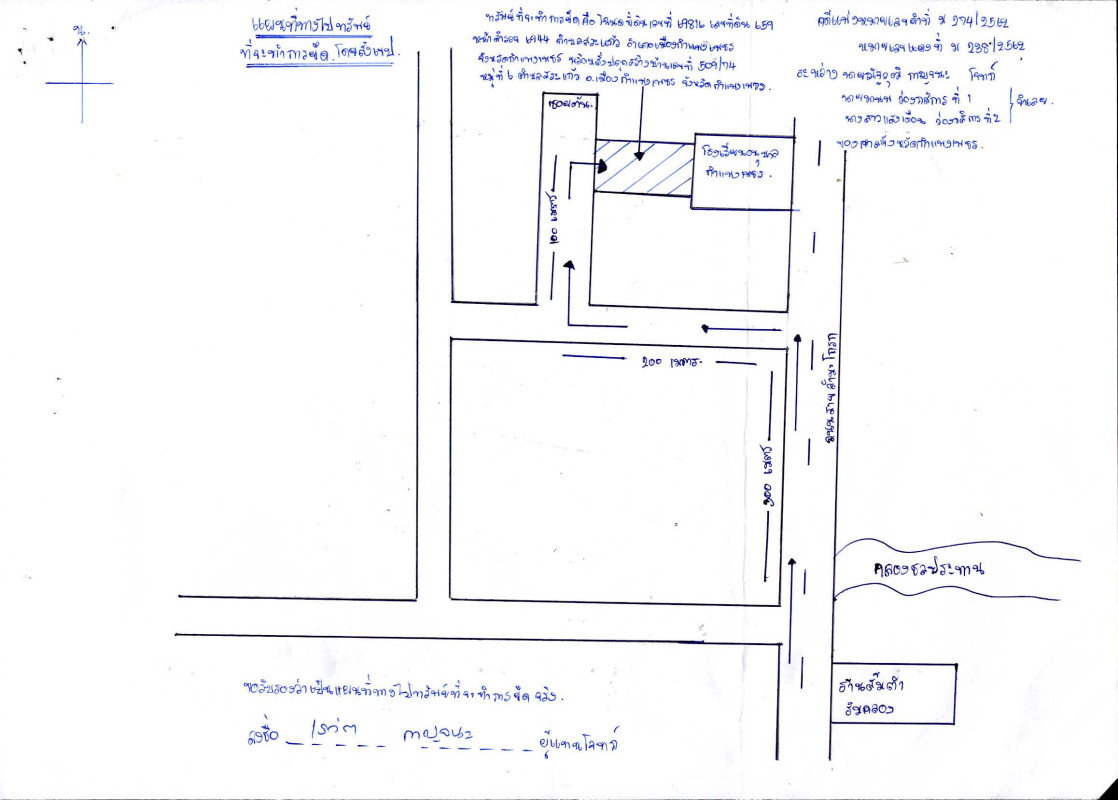 น.
แผนที่ทางไปทรัพย์
ที่จะทำการยึด โดยสังเขป.
ทรัพย์ที่จะทำการยึด คือ โฉนดที่ดินเลขที่ 69816 เลขที่ดิน 659
หน้าสำรวจ 6944 ตำบลสระแก้ว อำเภอเมืองกำแพงเพชร
จังหวัดกำแพงเพชร พร้อมสิ่งปลูกสร้างบ้านเลขที่ 509/74
หมู่ที่ 6 ตำบลสระแก้ว อ.เมืองกำแพงเพชร จังหวัดกำแพงเพชร.
คดีแพ่งหมายเลขดำที่ ม 174/2562
หมายเลขแดงที่ ม 238/2562
ระหว่าง นาย กาญจนะ โจทก์
นาย ว่องกสิการ ที่ 1
นางสาวแสงเดือน ว่องกสิการ ที่ 2
จำเลย.
ของศาลจังหวัดกำแพงเพชร.
ซอยตัน.
โรงเรียนอนุบาล
กำแพงเพชร.
100 เมตร
200 เมตร.
300 เมตร
ถนนสาย
คลองชลประทาน
ร้านส้มตำ
ริมคลอง
ขอรับรองว่าเป็นแผนที่ทางไปทรัพย์ที่จะทำการยึดจริง.
ลงชื่อ กาญจนะ ผู้แทนโจทก์